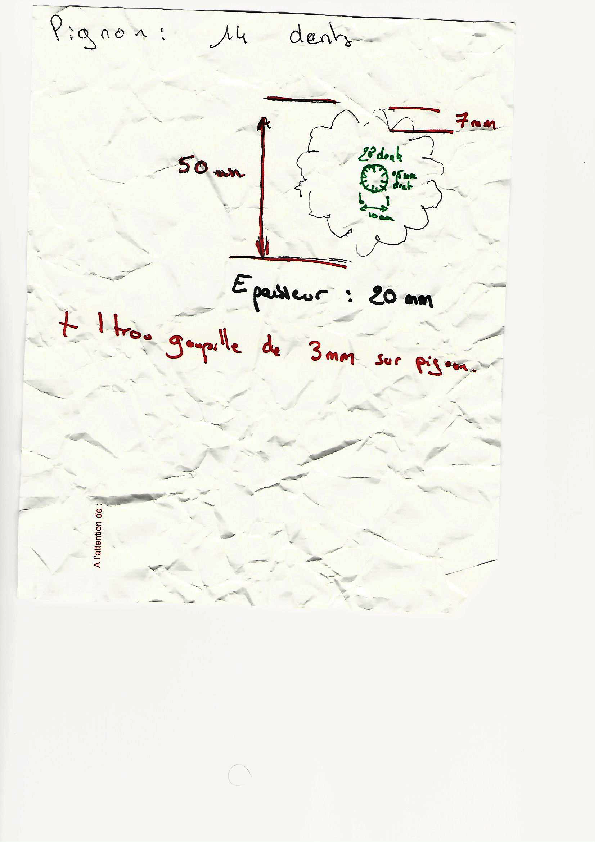 Pignon : 14 dents
7 mm
50 mm
28 dents
05 mm
dent
10 mm
Epaisseur : 20 mm
+ 1 trou goupille de 3 mm sur pignon.
A l'attention de :